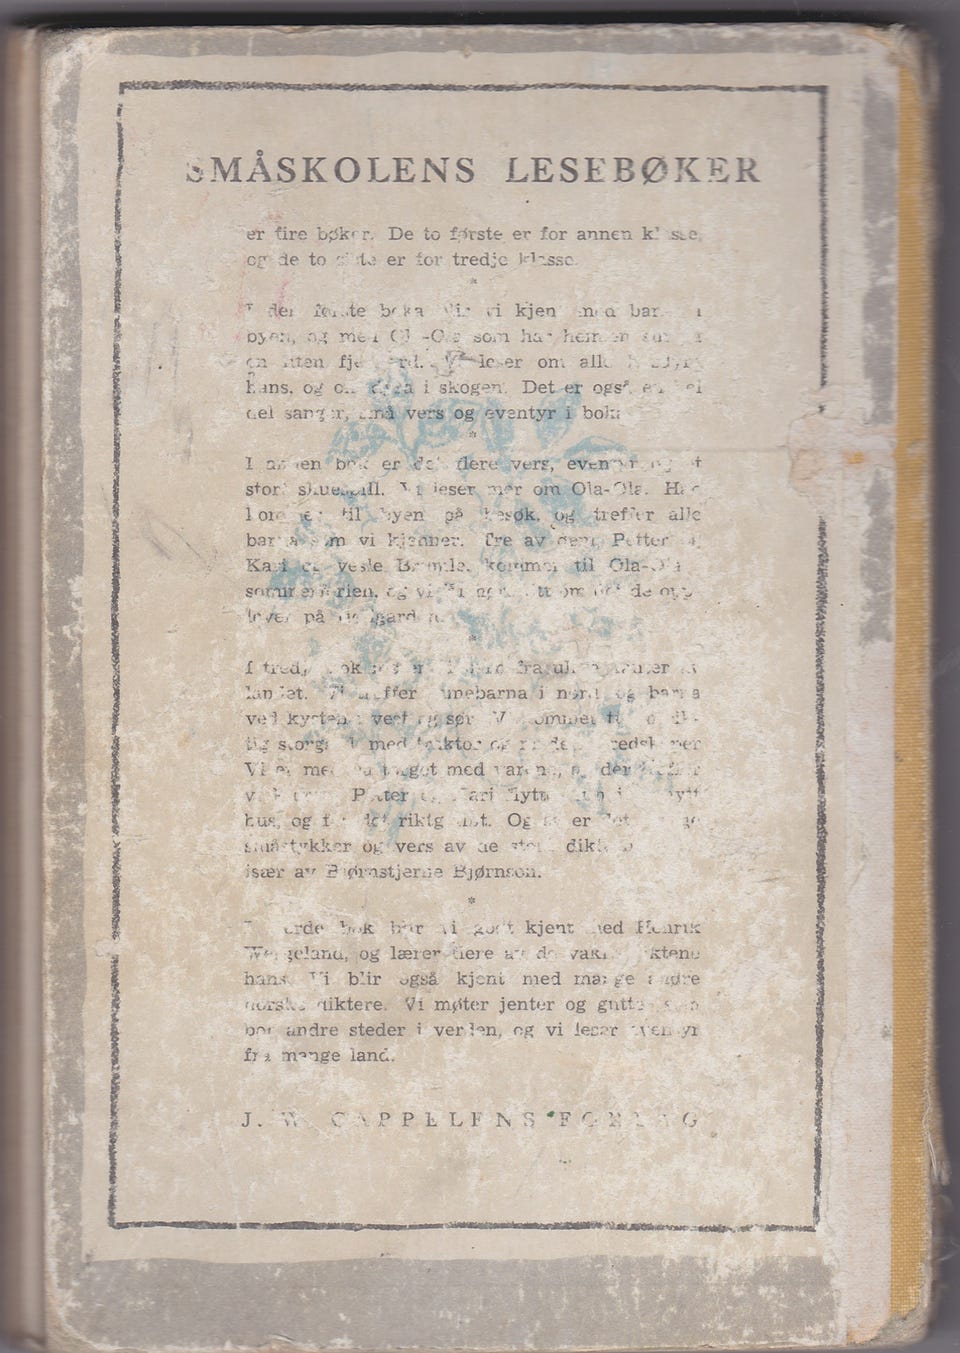 SMÅSKOLENS LESEBØKER
er fire bøker. De to første er for annen klasse,
og de to siste er for tredje klasse.
*
I den første boka blir vi kjent med barna i
byen, og med Ola-Ola som har hjemmen sin
en liten fjellgard. Vi leser om alle husdyra
hans, og om dyra i skogen. Det er også en hel
del sanger, små vers og eventyr i boka
*
I annen bok er det flere vers, eventyr og et
stort skuespill. Vi leser mer om Ola-Ola. Han
kommer til byen på besøk, og treffer alle
barna som vi kjenner. Tre av dem, Petter og
Kari og vesle Bamle, kommer til Ola-Ola
sommerferien, og vi får høre litt om det de opp-
lever på fjellgarden.
*
I tredje bok fra ulike kanter av
landet. Vi treffer samebarna i nord og barna
ved kysten i vest og sør. Vi kommer til
tig storgard med traktor og redskaper
Vi er med toget med varene, og der
Petter og Kari flytte inn i nytt
hus, og får det riktig fint. Og så er det mange
småstykker og vers av de store dikterne
især av Bjørnstjerne Bjørnson.
*
I fjerde bok blir vi godt kjent med Henrik
Wergeland, og lærer flere av de vakre diktene
hans. Vi blir også kjent med mange andre
norske diktere. Vi møter jenter og gutter som
bor andre steder i verden, og vi leser eventyr
fra mange land.
J. W. CAPPELENS FORLAG